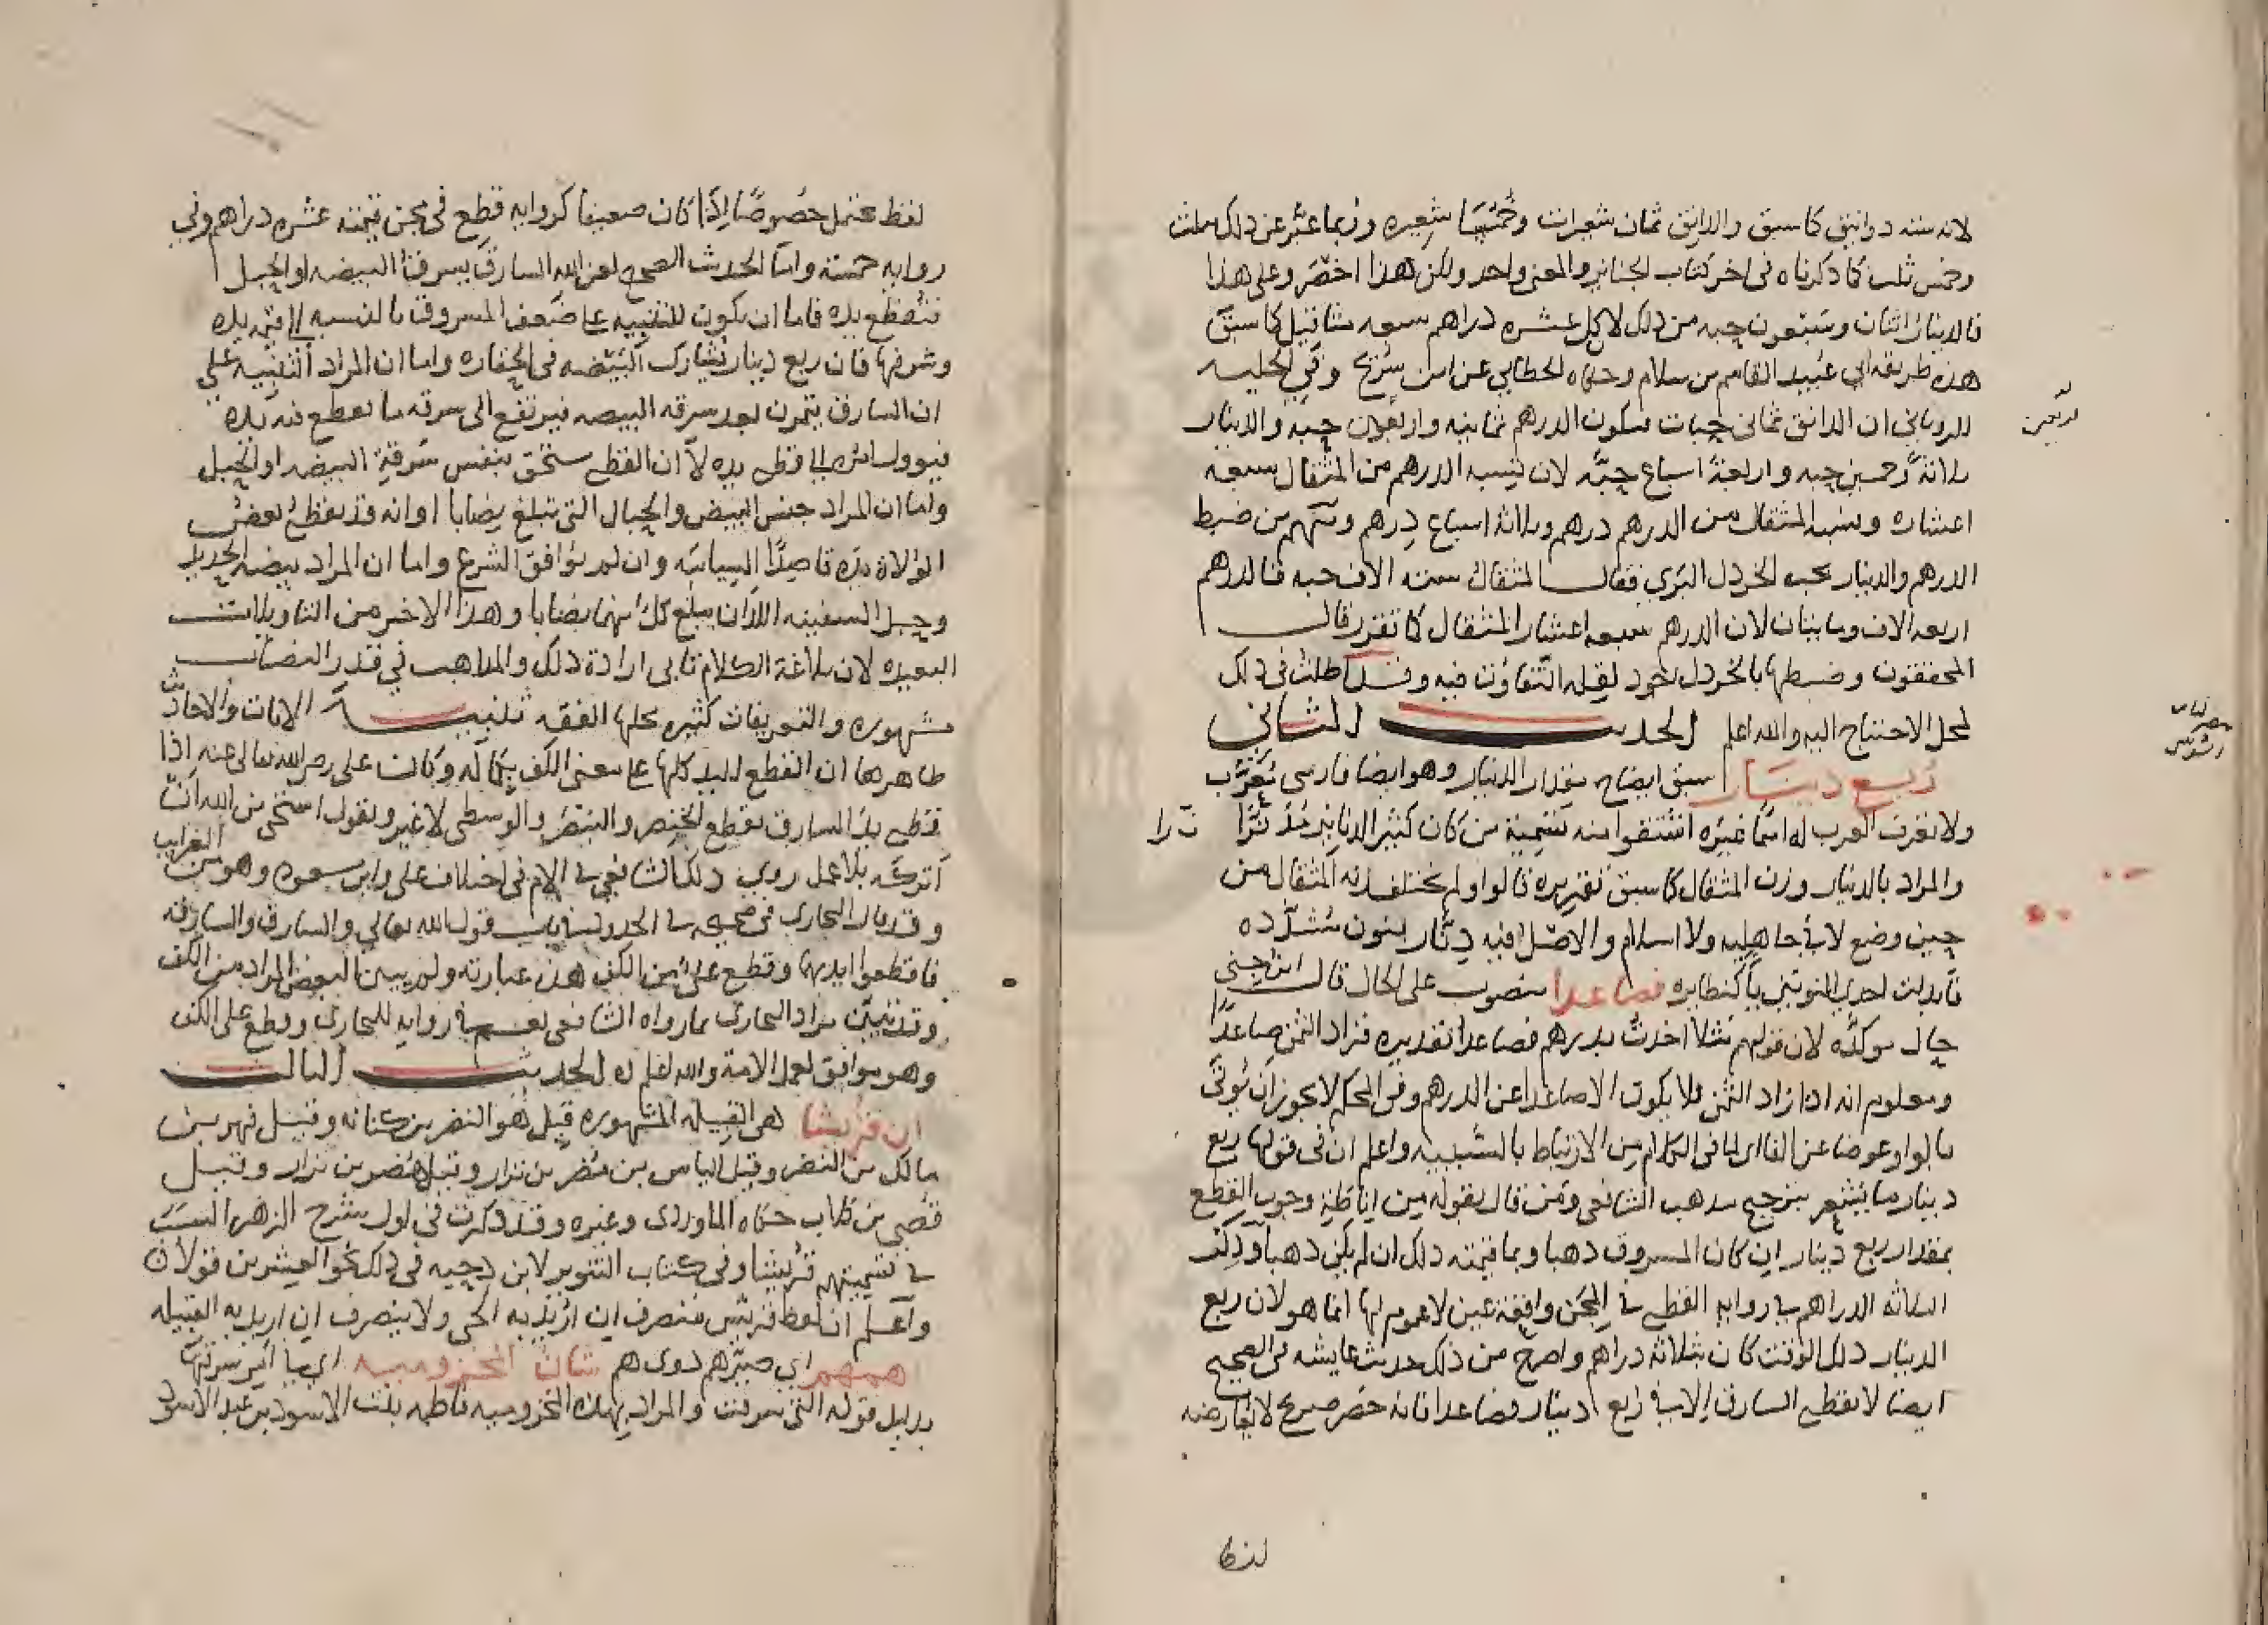 لانه ستة دوانيق كما سبق والدانق ثمان شعيرات وخمسا شعيره وربما عبر عن ذلك بثلث
وخمس ثلث كما ذكرناه في اخر كتاب الجنايز والمعنى واحد ولكن هذا اخصر وعلى هذا
فالدينار اثنان وسبعون حبه من ذلك لان كل عشره دراهم سبعه مثاقيل كما سبق
هذه طريقه ابي عبيد القاسم بن سلام وحكاه الخطابي عن ابن سريج وفي الحليه
للروياني ان الدانق ثماني حبات فيكون الدرهم ثمانيه واربعون حبة والدينار
ثلاثة وخمسين حبه واربعة اسباع حبة لان نسبه الدرهم من المثقال سبعه
اعشاره ونسبه المثقال من الدرهم درهم وثلاثه اسباع درهم ومنهم من ضبط
الدرهم والدينار بحب الخردل البري فقال المثقال سته الاف حبه فالدرهم
اربعه الاف ومايتان لان الدرهم سبعه اعشار المثقال كما تقرر قال
المحققون وضبطها بالخردل اجود لقله التفاوت فيه وقد اطلت في ذلك
لمحل الاحتياج اليه والله اعلم الحديث الثاني
ربع دينار سبق ايضاح مقدار الدينار وهو ايضا فارسي معرب
ولا تعرف العرب له اسما غيره اشتقوا منه تسمية من كان كثير الدنانير مدنرا
والمراد بالدينار وزن المثقال كما سبق تقريره قالوا ولم يختلف زنه المثقال من
حين وضع لا في جاهليه ولا اسلام والاصل فيه دنار بنون مشدده
فابدلت احدى النونين ياء كنظايره فصاعدا منصوب على الحال قال ابن جني
حال موكده لان قولهم مثلا اخذت بدرهم فصاعدا تقديره فزاد الثمن صاعدا
ومعلوم انه اذا زاد الثمن فلا يكون الا صاعدا عن الدرهم وفي المحكم لا يجوز ان يؤتى
بالواو عوضا عن الفا اي لما في الكلام من الارتباط بالسببيه واعلم ان في قولها ربع
دينار ما يشعر بترجيح مذهب الشافعي ومن قال بقوله من اناطة وجوب القطع
بمقدار ربع دينار ان كان المسروق ذهبا وبما قيمته ذلك ان لم يكن ذهبا وذكر
الثلاثه الدراهم في روايه القطع في المجن واقعة عين لا عموم لها انما هو لان ربع
الدينار ذلك الوقت كان بثلاثه دراهم واصرح من ذلك حديث عايشه في الصحيح
ايضا لا يقطع السارق الا في ربع دينار فصاعدا فانه حصر صريح لا يعارضه
لفظ
لفظ محتمل خصوصا اذا كان ضعيفا كروايه قطع في مجن قيمته عشره دراهم وفي
روايه خمسة واما الحديث الصحيح لعن الله السارق يسرق البيضه او الحبل
فتقطع يده فاما ان يكون للتنبيه على ضعف المسروق بالنسبه الى قيمة يده
وشرفها فان ربع دينار يشارك البيضه في الحقاره واما ان المراد التنبيه على
ان السارق يتمرن بعد سرقه البيضه فيرتفع الى سرقه ما يقطع فيه يده
فيوول امره الى قطع يده لا ان القطع مستحق بنفس سرقة البيضه او الحبل
واما ان المراد جنس البيض والحبال التي تبلغ نصابا او انه قد يقطع بعض
الولاة يده قاصدا السياسه وان لم يوافق الشرع واما ان المراد بيضه الحديد
وحبل السفينه اللذان يبلغ كل منهما نصابا وهذا الاخر من التاويلات
البعيده لان بلاغة الكلام تابى ارادة ذلك والمذاهب في قدر النصاب
مشهوره والتعريفات كثيره محلها الفقه تنبيه الايات والاحاديث
ظاهرها ان القطع لليد كلها على معنى الكف بكماله وكان علي رضي الله تعالى عنه اذا
قطع يد السارق يقطع الخنصر والبنصر والوسطى لا غير ويقول استحي من الله ان
اتركه بلا عمل روى ذلك الشافعي في الام في اختلاف علي وابن مسعود وهو من الغرايب
وقد قال البخاري في صحيحه في الحدود باب قول الله تعالى والسارق والسارقه
فاقطعوا ايديهما وقطع علي من الكف هذه عبارته ولم يبين البعض المراد من الكف
وقد تبين مراد البخاري بما رواه الشافعي نعم في روايه للبخاري وقطع علي الكف
وهو موافق لعمل الامة والله اعلم الحديث الثالث
ان قريشا هي القبيله المشهوره قيل هو النضر بن كنانه وقيل فهر بن
مالك بن النضر وقيل الياس بن مضر بن نزار وقيل مضر بن نزار وقيل
قصي بن كلاب حكاه الماوردي وغيره وقد ذكرت في اول شرح الزهر السبب
في تسميتهم قريشا وفي كتاب التنوير لابن دحيه في ذلك نحو العشرين قولا
واعلم ان لفظ قريش منصرف ان اريد به الحي ولا ينصرف ان اريد به القبيله
اهمهم اي صيرهم ذوي هم شان المخزوميه اي امر سرقتها
بدليل قوله التي سرقت والمراد بهذه المخزوميه فاطمه بنت الاسود بن عبد الاسود